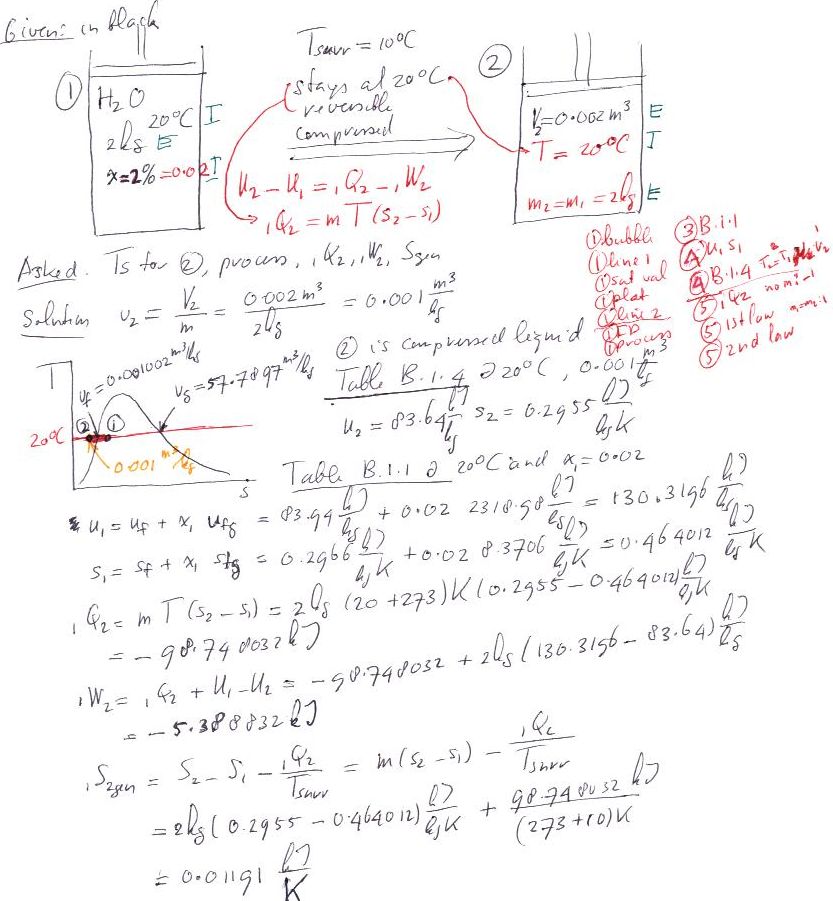 Given: in black
T_surr = 10°C
①
H₂O
20°C I
2kg E
x=2%=0.02 I
stays at 20°C.
reversible
compressed
U₂ - U₁ = ₁Q₂ - ₁W₂
₁Q₂ = m T (s₂ - s₁)
②
V₂=0.002 m³ E
T = 20°C I
m₂ = m₁ = 2kg E
Asked. Ts for ②, process, ₁Q₂, ₁W₂, Sgen
① bubble
① line 1
① sat val
① plat
① line 2
① FD
① process
③ B.1.1
④ u, s₁
④ B.1.4 T₂=T₁
⑤ ₁Q₂ no m: -1
⑤ 1st law
⑤ 2nd law
Solution v₂ = V₂/m = 0.002 m³/2kg = 0.001 m³/kg
② is compressed liquid
Table B.1.4 @ 20°C, 0.001 m³/kg
u₂ = 83.64 kJ/kg s₂ = 0.2955 kJ/kg K
T
v_f = 0.001002 m³/kg
v_g = 57.7897 m³/kg
② ①
20°C
0.001 m³/kg
s
Table B.1.1 @ 20°C and x₁ = 0.02
u₁ = u_f + x₁ u_fg = 83.94 kJ/kg + 0.02 2318.98 kJ/kg = 130.3196 kJ/kg
s₁ = s_f + x₁ s_fg = 0.2966 kJ/kg K + 0.02 8.3706 kJ/kg K = 0.464012 kJ/kg K
₁Q₂ = m T (s₂ - s₁) = 2kg (20+273)K (0.2955 - 0.464012) kJ/kg K
= -98.748032 kJ
₁W₂ = ₁Q₂ + U₁ - U₂ = -98.748032 + 2kg (130.3196 - 83.64) kJ/kg
= -5.388832 kJ
₁S₂gen = S₂ - S₁ - ₁Q₂/T_surr = m(s₂ - s₁) - ₁Q₂/T_surr
= 2kg (0.2955 - 0.464012) kJ/kg K + 98.748032 kJ/(273+10)K
= 0.01191 kJ/K